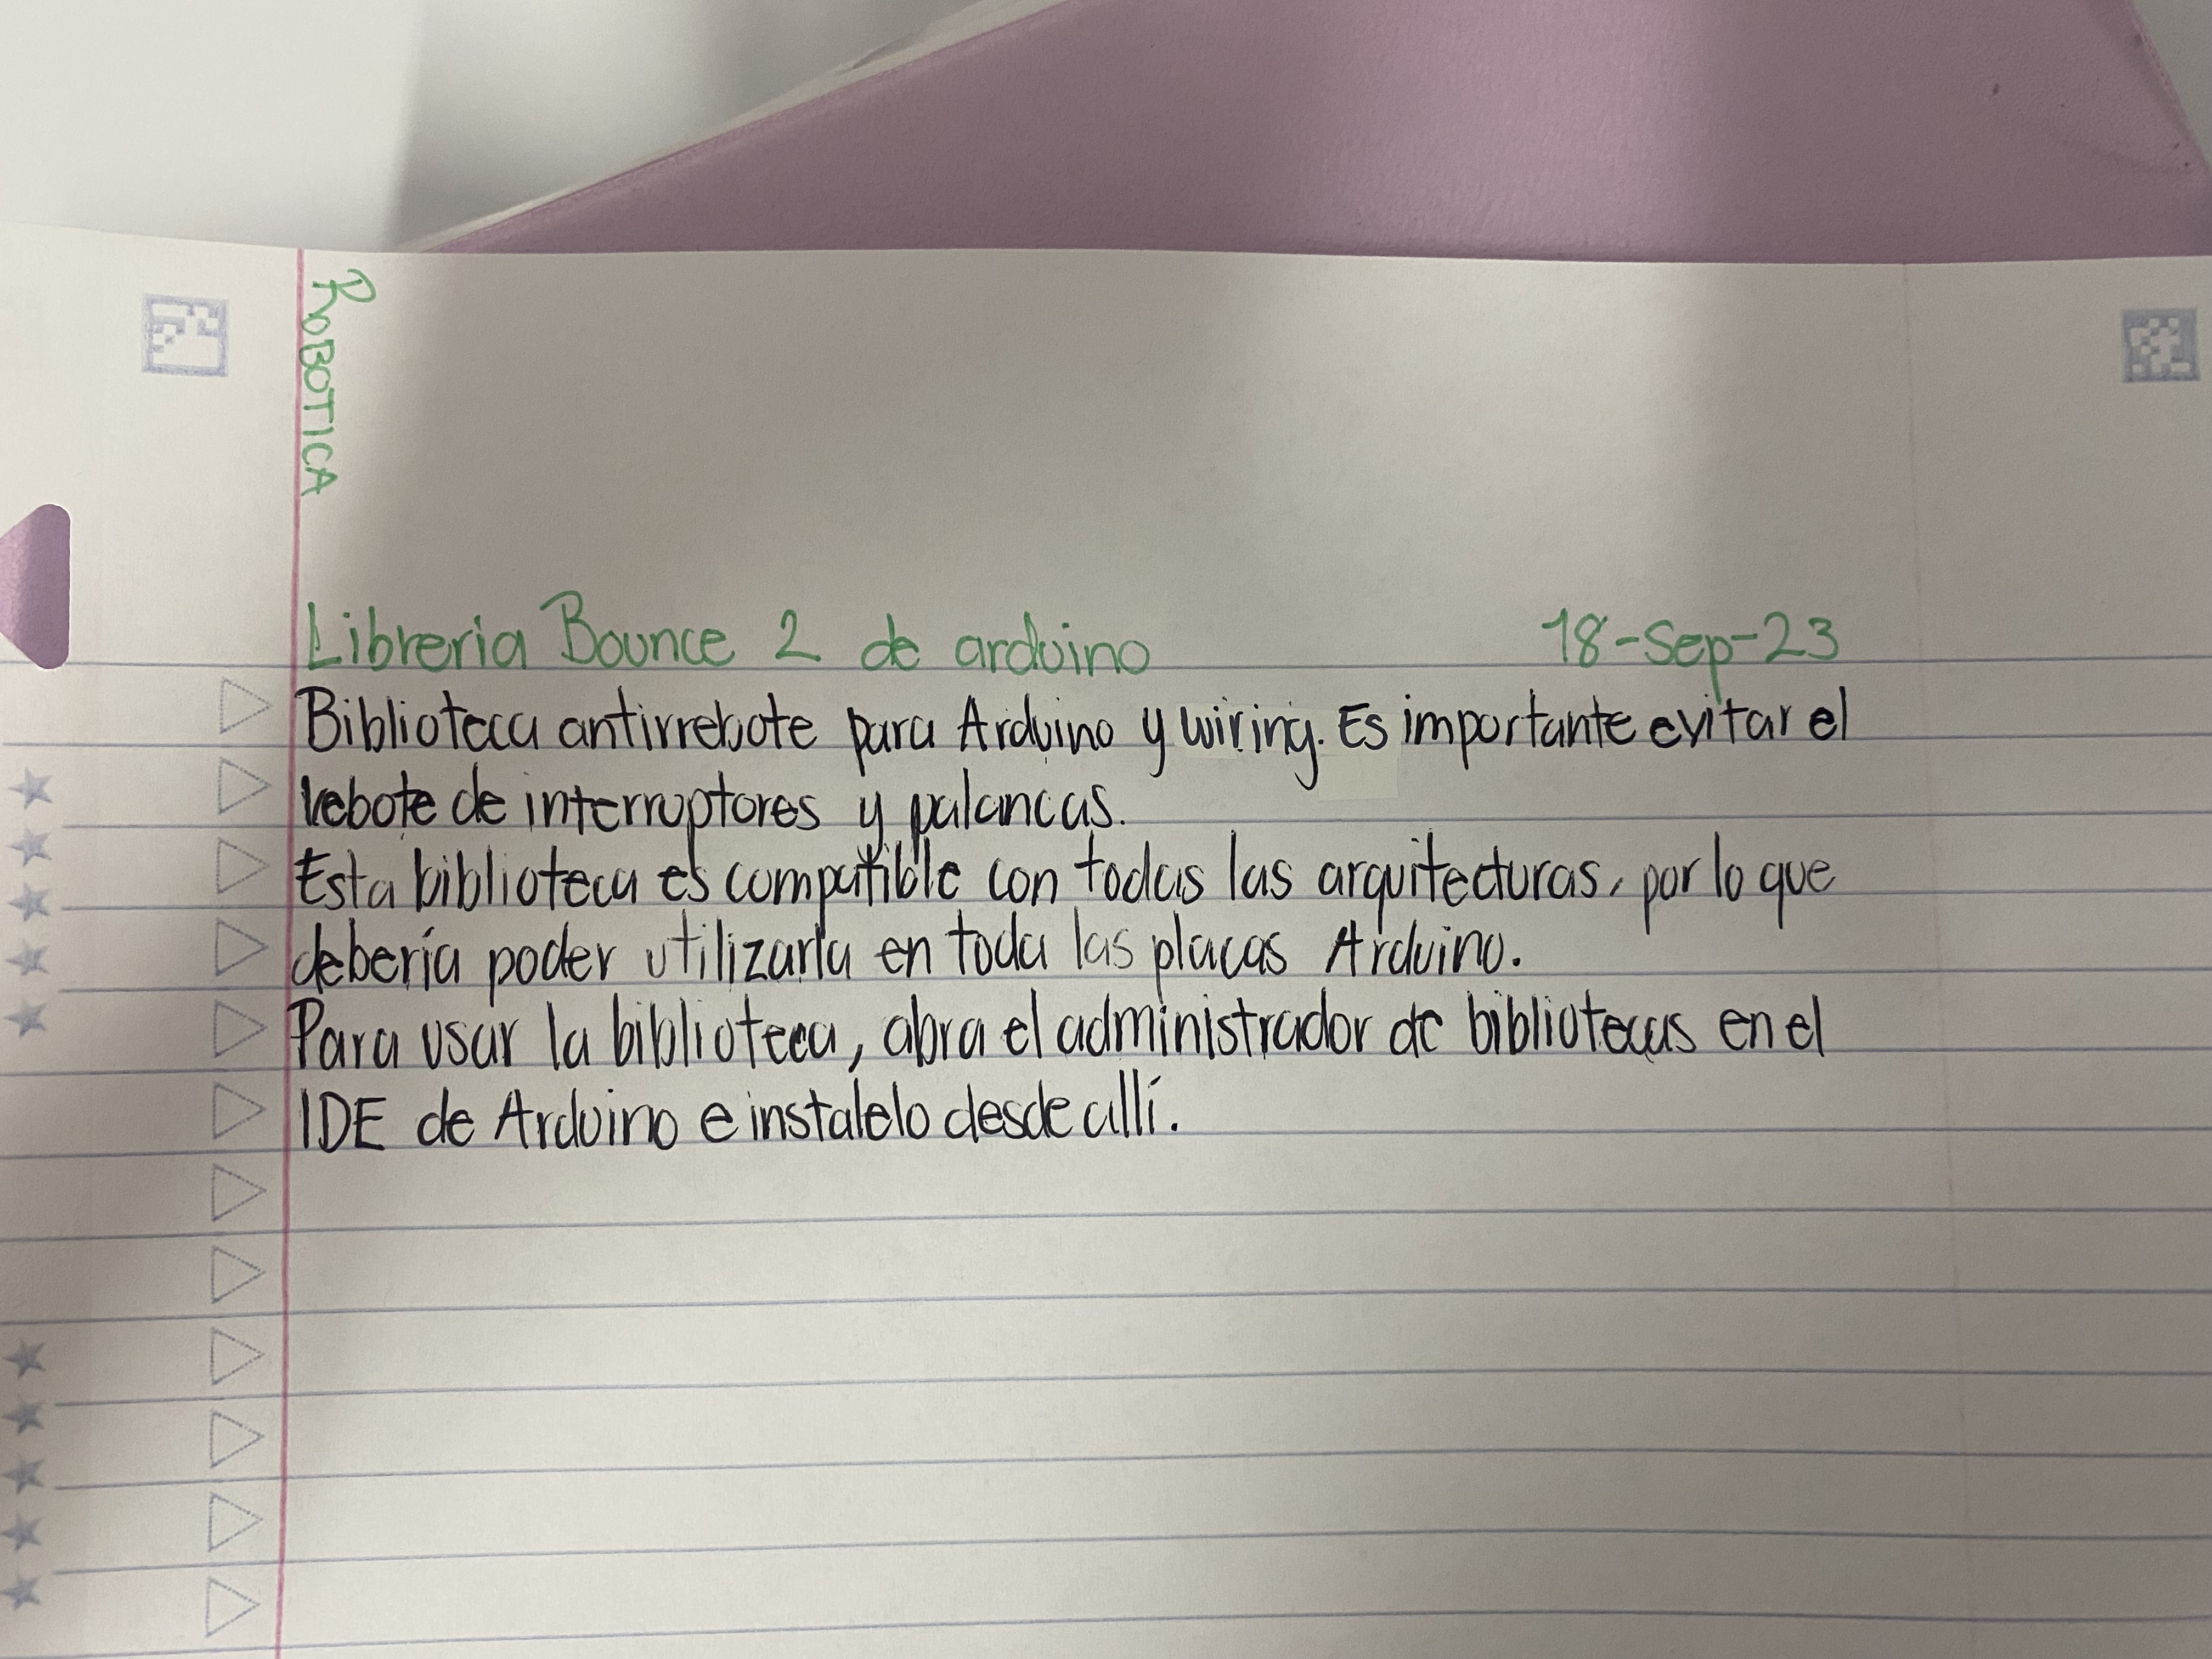 ROBOTICA
Libreria Bounce 2 de arduino 18-Sep-23
Biblioteca antirrebote para Arduino y wiring. Es importante evitar el
rebote de interruptores y palancas.
Esta biblioteca es compatible con todas las arquitecturas, por lo que
debería poder utilizarla en toda las placas Arduino.
Para usar la biblioteca, abra el administrador de bibliotecas en el
IDE de Arduino e instalelo desde allí.